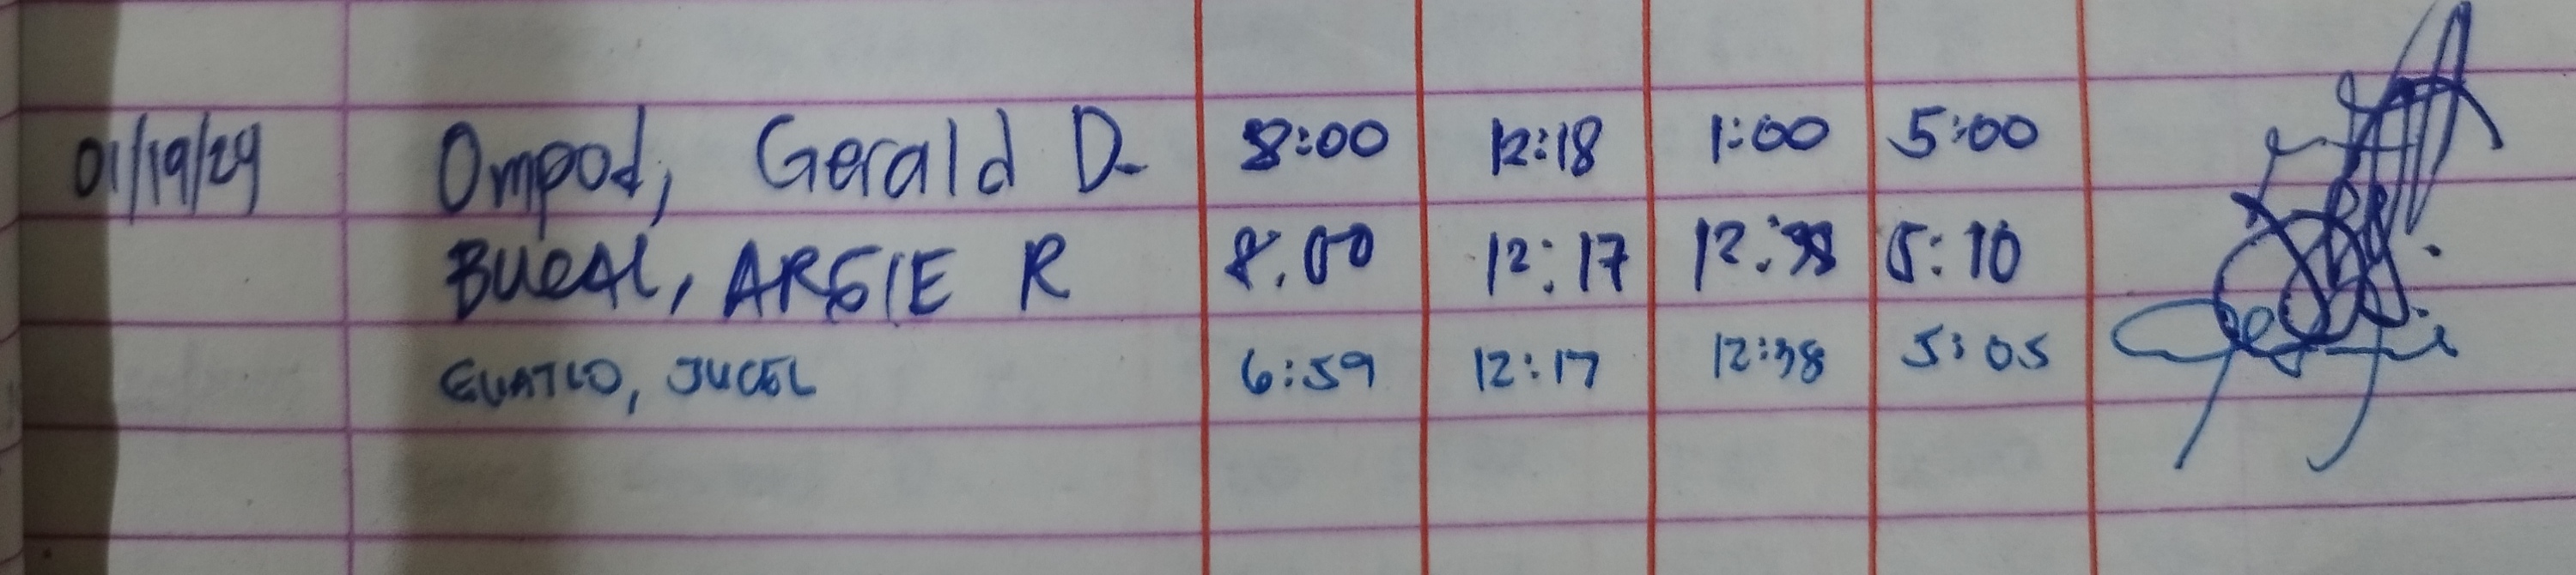 01/19/24 Ompod, Gerald D. 8:00 12:18 1:00 5:00
BUCAL, ARGIE R 8:00 12:17 12:38 5:10
GUATLO, JUCEL 6:59 12:17 12:38 5:05